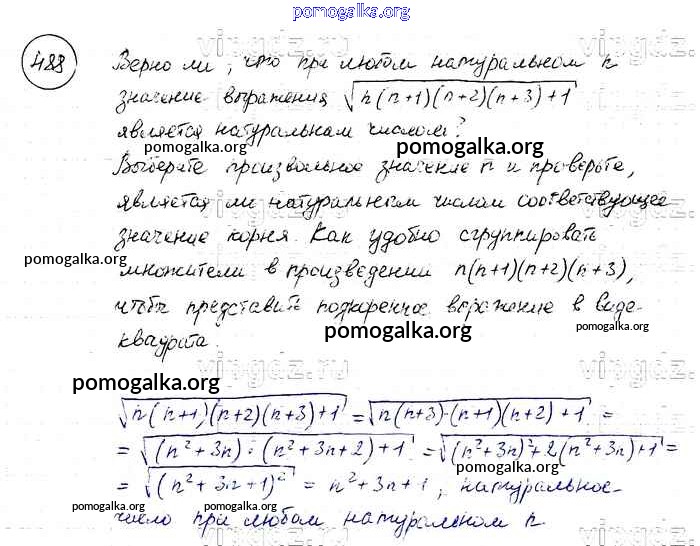 pomogalka.org
488
Верно ли, что при любом натуральном n
значение выражения √n(n+1)(n+2)(n+3)+1
является натуральным числом?
Выберете произвольное значение n и проверьте,
является ли натуральным числом соответствующее
значение корня. Как удобно сгруппировать
множители в произведении n(n+1)(n+2)(n+3),
чтобы представить подкоренное выражение в виде
квадрата.
√n(n+1)(n+2)(n+3)+1 = √n(n+3)·(n+1)(n+2)+1 =
= √(n²+3n)·(n²+3n+2)+1 = √(n²+3n)²+2(n²+3n)+1 =
= √(n²+3n+1)² = n²+3n+1, натуральное
число при любом натуральном n
pomogalka.org
pomogalka.org
pomogalka.org
pomogalka.org
pomogalka.org
pomogalka.org
pomogalka.org
pomogalka.org
pomogalka.org
pomogalka.org
pomogalka.org